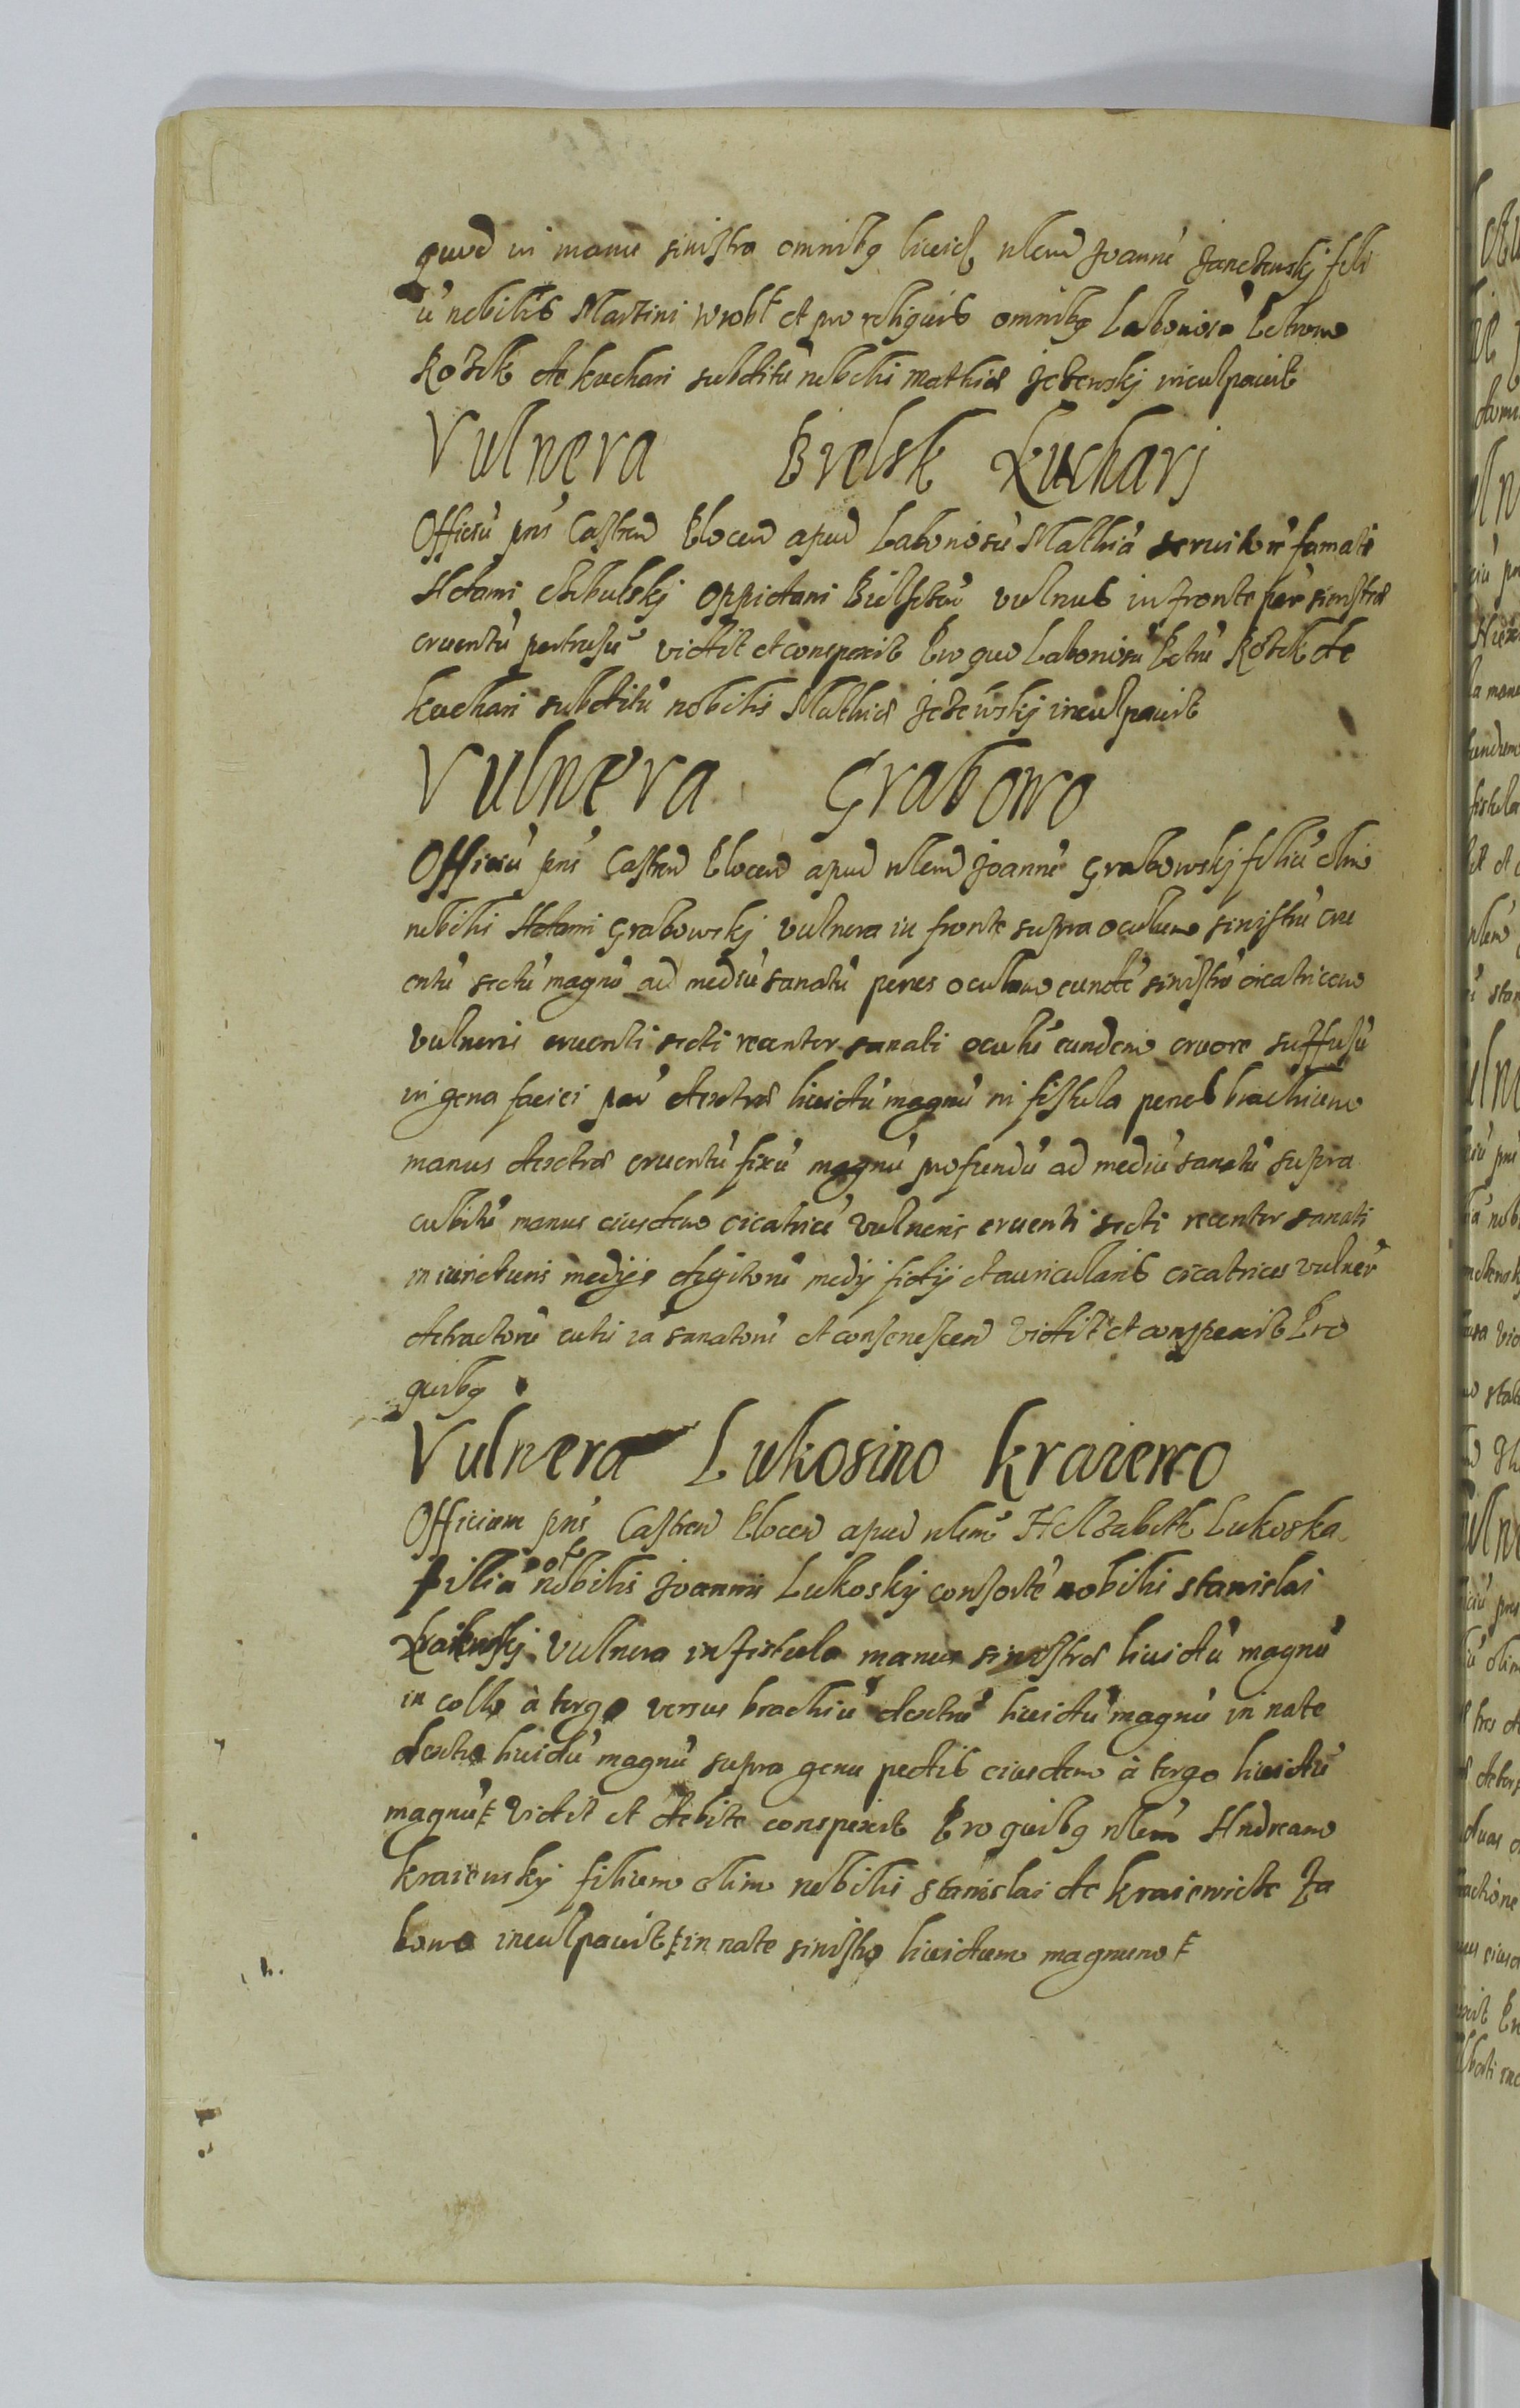 quod in manu sinistra omnibq livid nlem Joannē Janczewskj fili
ū nobilis Martini Wrobl et pro reliquis omnibq Laboriosū Petrum
Rozek de Kuchari subditū nobilis Mathiæ Jezewskj inculpavit
Vulnera Bielsk Kucharj
Officiū pns Castren Plocen apud Laboriosū Mathiā servitorē famati
Adami Cibulskj oppidani Bielscen vulnus in fronte per sinistræ
cruentū pertusū vidit et conspexit Pro quo Laboriosū Petrū Rozek de
Kuchari subditū nobilis Mathiæ Jezewskj inculpavit
Vulnera Grabowo
Officiū pns Castren Plocen apud nlem Joannē Grabowskj filiū olim
nobilis Adami Grabowskj vulnera in fronte supra oculum sinistrū cru
entū sectū magnū ad mediū sanatū penes oculum eundē sinistrū cicatricem
vulneris cruenti secti recenter sanati oculū eundem cruore suffusū
in gena faciei par dextræ lividū magnū in fistula penes brachium
manus dextræ cruentū fixū magnū profundū ad mediū sanatū supra
cubitū manus eiusdem cicatricē vulneris cruenti secti recenter sanati
in iuncturis medijs digitorū medij fidij et auricularis cicatrices vulner
detractorū cutis ia sanatorū et consenescen vidit et conspexit Pro
quibq
Vulnera Lukosino Kraiewo
Officium pns Castren Plocen apud nlem Helzabeth Lukoska
filiā nobilis Joannis Lukoskij consortē nobilis Stanislai
Kraiewskj vulnera in fistula manus sinistræ lividū magnū
in collo à tergo versus brachiū dextrū lividū magnū in nate
dextra lividū magnū supra genu pedis eiusdem à tergo lividū
magnū vidit et debite conspexit Pro quibq nlem Andream
Kraiewskij filium olim nobilis Stanislai de Kraiewicze Za
bowo inculpavit in nate sinistra lividum magnum